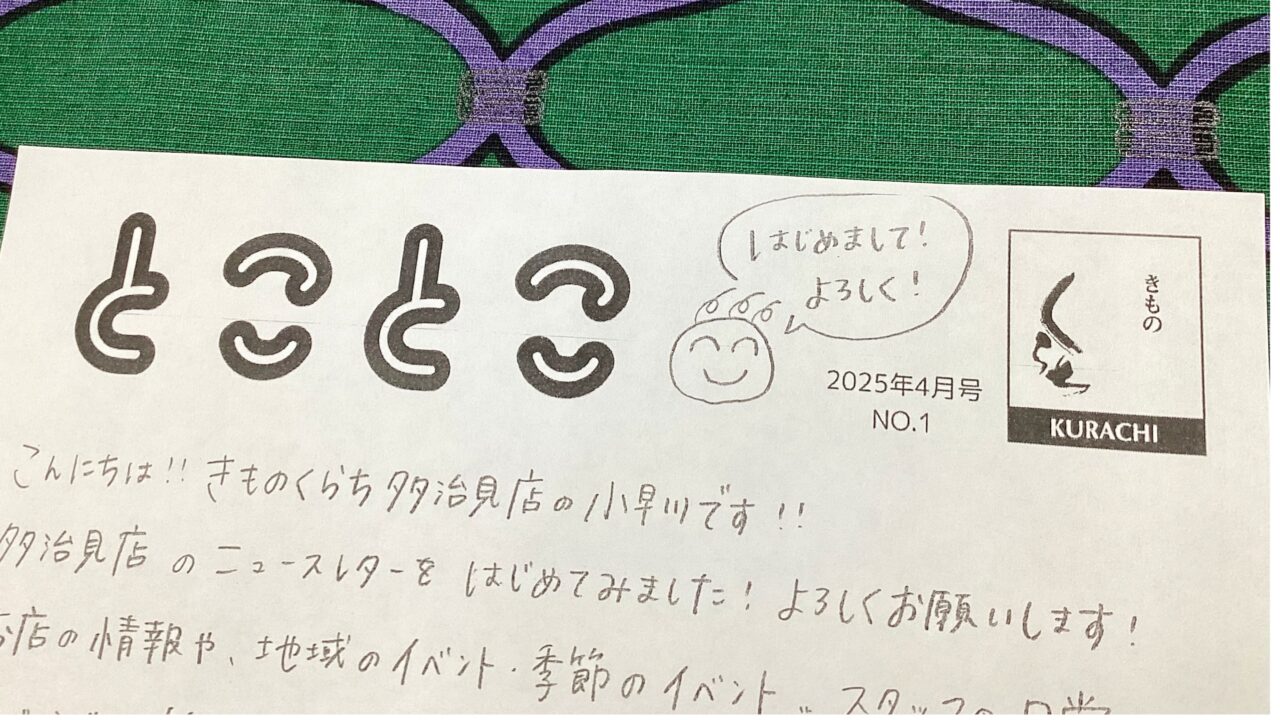 とことこ
はじめまして！
よろしく！
2025年4月号
NO.1
きもの
く
KURACHI
こんにちは!! きものくらち多治見店の小早川です!!
多治見店のニュースレターをはじめてみました！よろしくお願いします！
お店の情報や、地域のイベント・季節のイベント、スタッフの日常